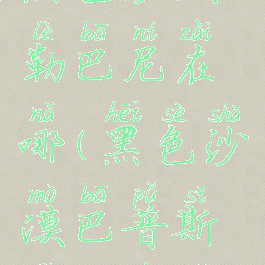 lè bā ní zài
勒巴尼在
nǎ hēi sè shā
哪(黑色沙
mò bā pǔ sī
漠巴普斯